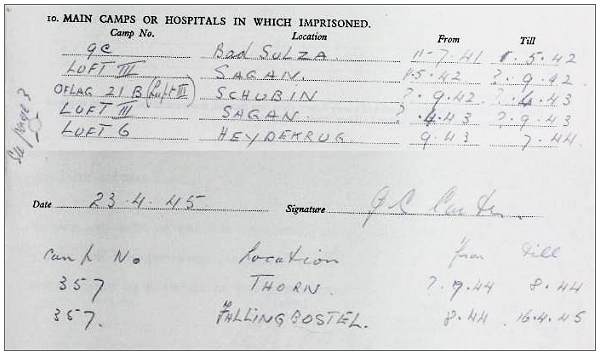 10. MAIN CAMPS OR HOSPITALS IN WHICH IMPRISONED.
Camp No. Location From Till
9C Bad SULZA. 11-7.41 1.5.42
LUFT III SAGAN. 1.5.42 ?.9.42
OFLAG 21 B (Luft III) SCHUBIN ?.9.42 ?.4.43
LUFT III SAGAN. ?.4.43 ?.9.43
LUFT 6 HEYDEKRUG 9.43 7.44
See page 3
Date 23.4.45 Signature
Camp No Location From till
357 THORN. 8.44
357. FALLINGBOSTEL. 8.44 16.4.45